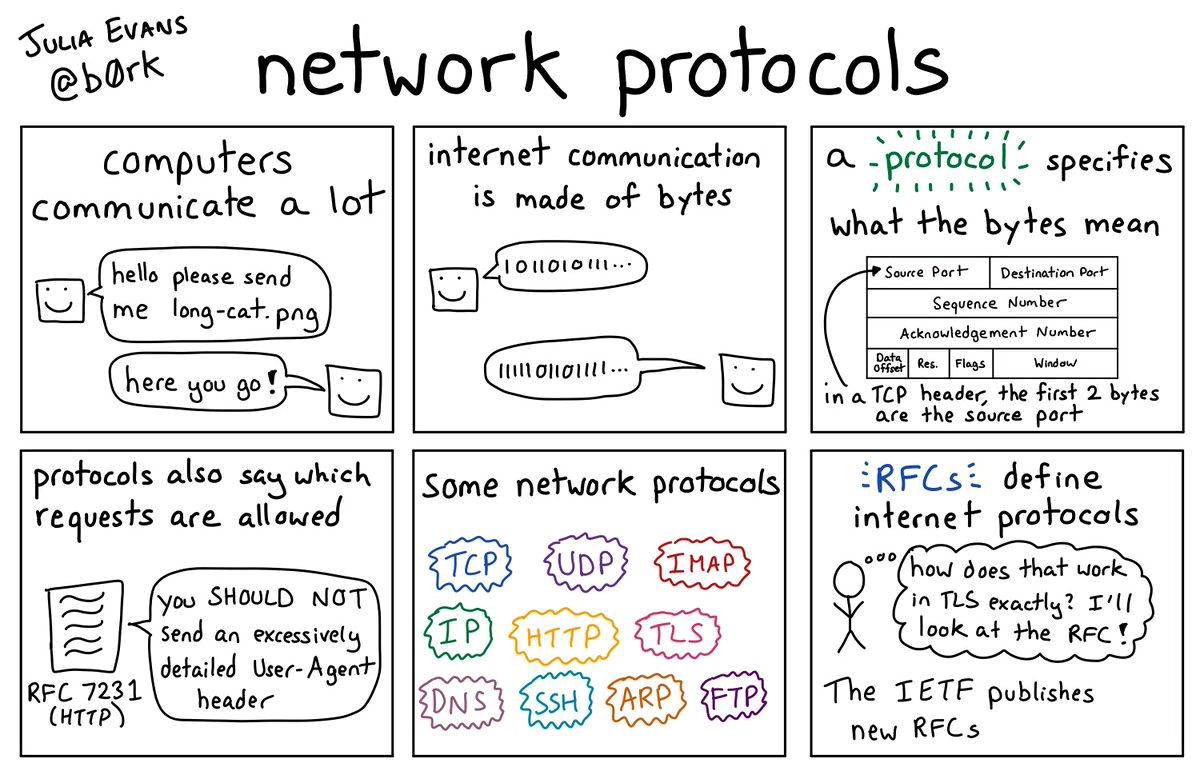 JULIA EVANS
@b0rk
network protocols
computers
communicate a lot
hello please send
me long-cat.png
here you go!
internet communication
is made of bytes
1011010111...
1111101101111...
a protocol specifies
what the bytes mean
Source Port Destination Port
Sequence Number
Acknowledgement Number
Data
Offset Res. Flags Window
in a TCP header, the first 2 bytes
are the source port
protocols also say which
requests are allowed
you SHOULD NOT
send an excessively
detailed User-Agent
header
RFC 7231
(HTTP)
Some network protocols
TCP UDP IMAP
IP HTTP TLS
DNS SSH ARP FTP
RFCs define
internet protocols
how does that work
in TLS exactly? I'll
look at the RFC!
The IETF publishes
new RFCs